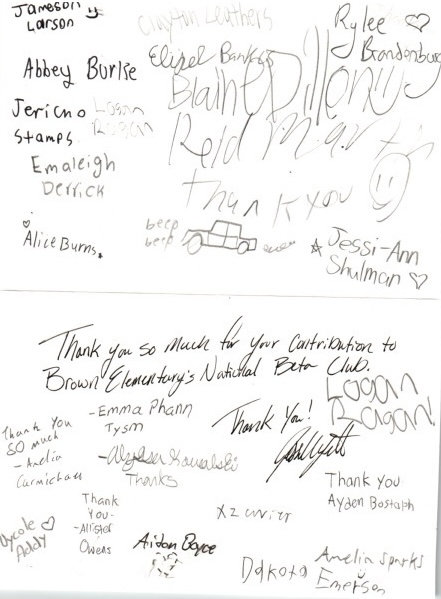 Jameson
Larson
Clayton Leathers
Rylee
Brandenburg
Abbey Burke
Elizel Banks
Blaine Dillon
Jericho
Stamps
Logan
Rogan
Reid Martin
Emaleigh
Derrick
Thank you
Alice Burns
beep
beep
Jessi-Ann
Shulman
Thank you so much for your contribution to
Brown Elementary's National Beta Club.
Logan
Ragan!
Thank You!
-Emma Phann
Tysm
Thank You
so much
-Amelia
Carmichael
Kowalski
Thanks
Thank You
Ayden Bostolph
Thank
You-
-Allister
Owens
Addy
Aidan Boyce
Dakota
Amelia Sparks
Emerson